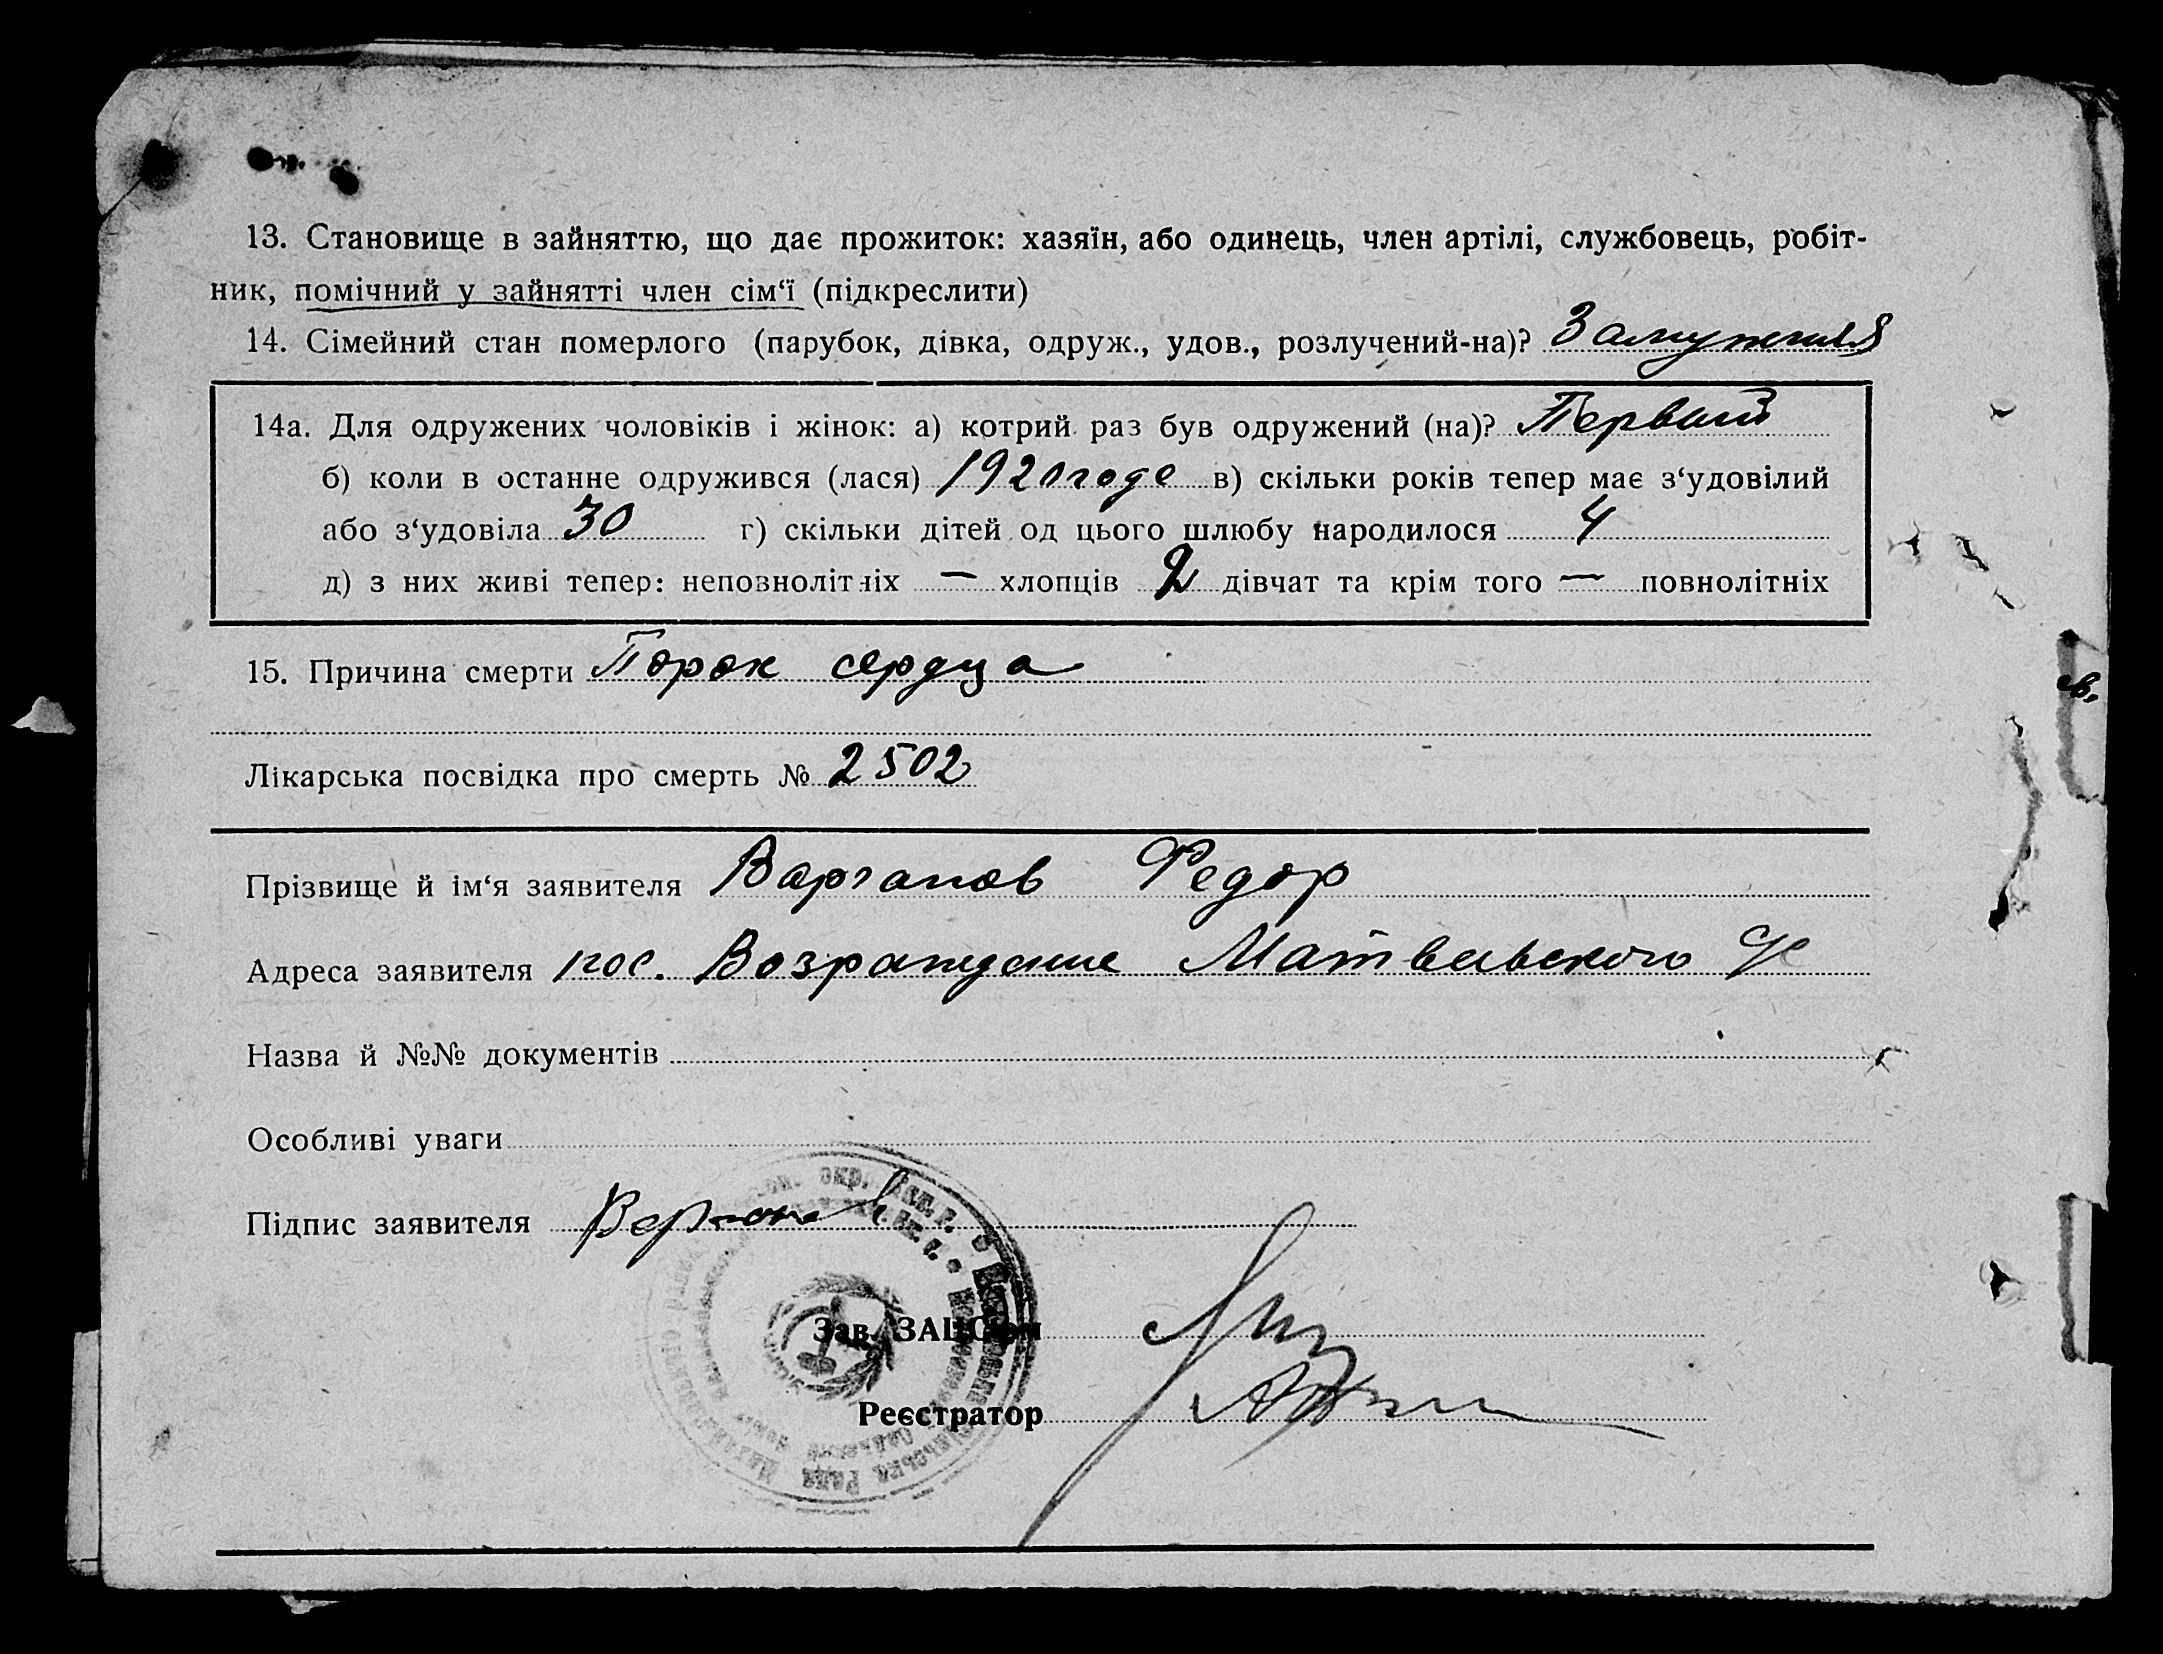 13. Становище в зайняттю, що дає прожиток: хазяїн, або одинець, член артілі, службовець, робіт-
ник, помічний у зайнятті член сім‘ї (підкреслити)
14. Сімейний стан померлого (парубок, дівка, одруж., удов., розлучений-на)? Замужняя
14а. Для одружених чоловіків і жінок: а) котрий раз був одружений (на)? Первый
б) коли в останне одружився (лася) 1920 годе в) скільки років тепер має з‘удовілий
або з‘удовіла 30 г) скільки дітей од цього шлюбу народилося 4
д) з них живі тепер: неповнолітніх — хлопців 2 дівчат та крім того — повнолітніх
15. Причина смерти Порок сердца
Лікарська посвідка про смерть № 2502
Прізвище й ім‘я заявителя Варганов Федор
Адреса заявителя пос. Возраждение Матвеевского
Назва й №№ документів
Особливі уваги
Підпис заявителя
Зав. ЗАЦС‘ом
Реєстратор